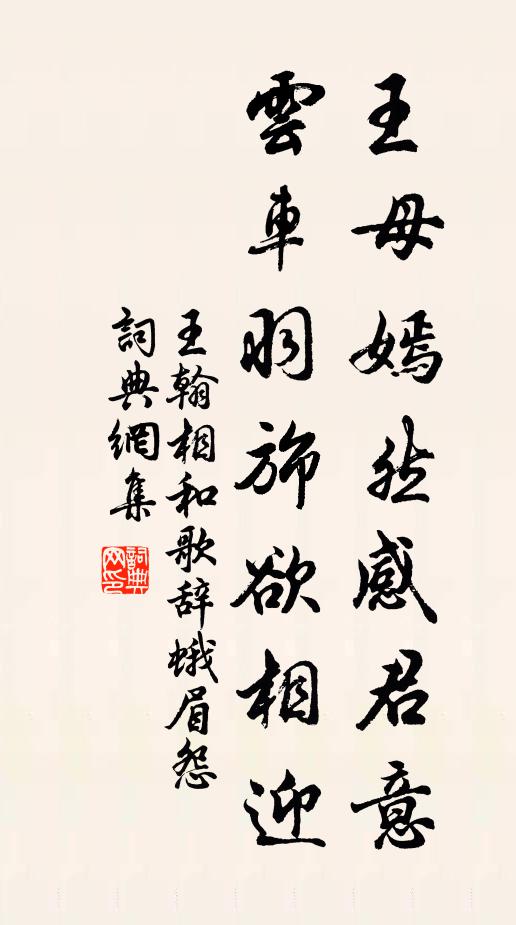 王母嫣然感君意
雲車羽旆欲相迎
王翰相和歌辞蛾眉怨
詞典網集
詞典网印